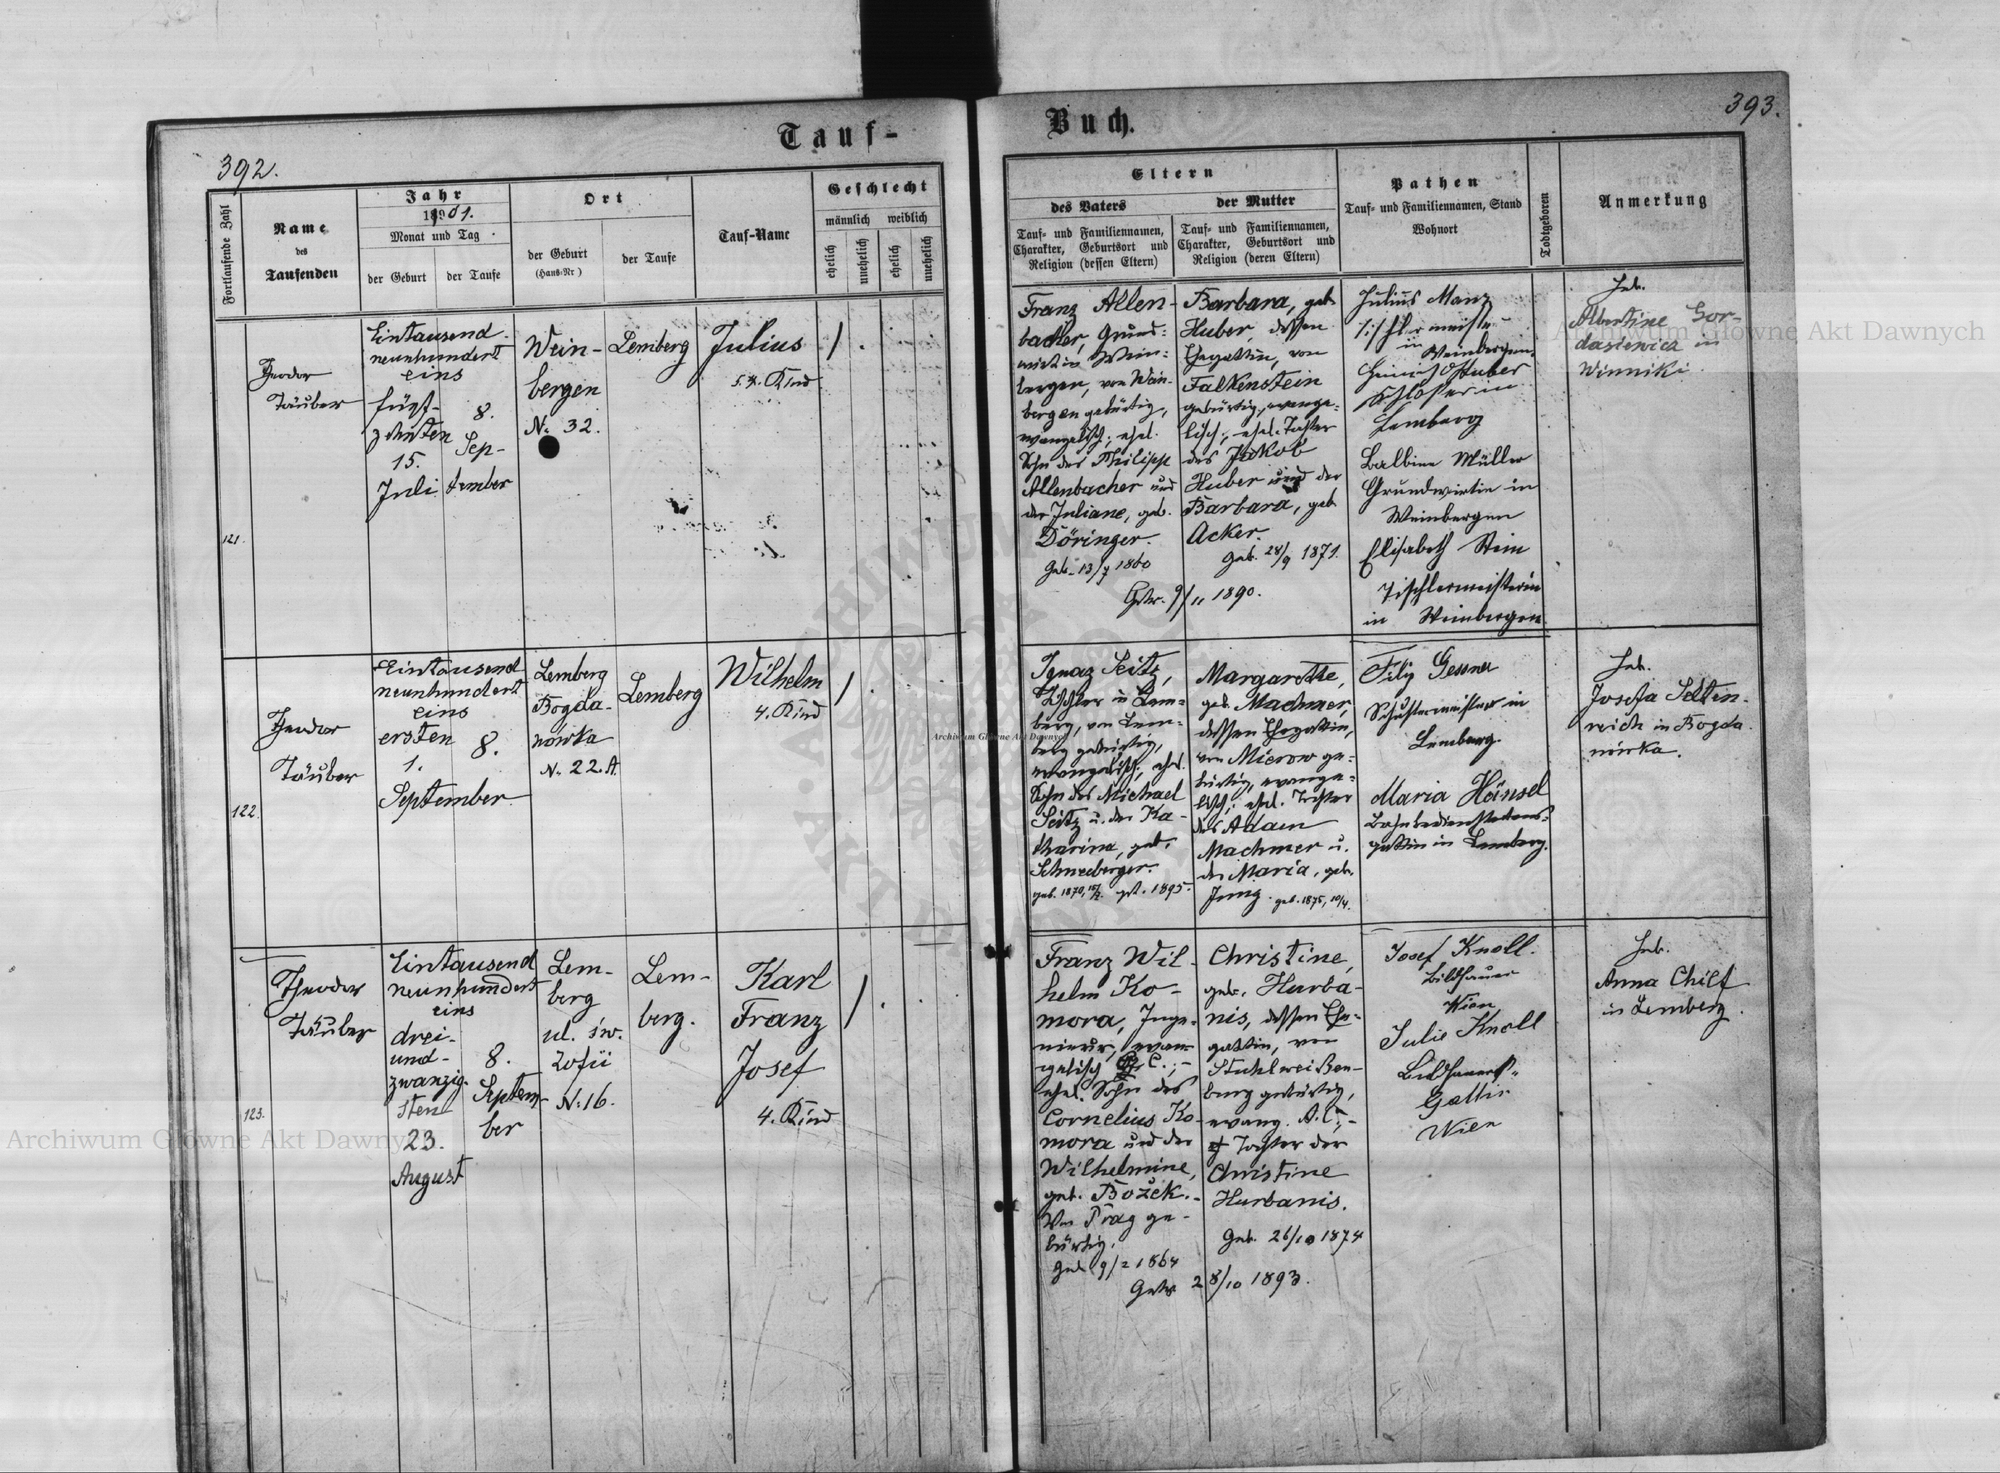 Tauf-
392.
Fortlaufende Zahl
Name
des
Taufenden
Jahr
1901.
Monat und Tag
der Geburt
der Taufe
Ort
der Geburt
(Haus-Nr)
der Taufe
Tauf-Name
Geschlecht
männlich
weiblich
ehelich
unehelich
ehelich
unehelich
121.
Theodor
Täuber
Eintausend
neunhundert
eins
fünf-
zehnten
15.
Juli
8.
Sep-
tember
Wein-
bergen
N: 32.
Lemberg
Julius
Kind
/
122.
Theodor
Täuber
Eintausend
neunhundert
eins
ersten
1.
September
8.
Lemberg
Bogda-
nówka
N. 22.A.
Lemberg
Wilhelm
4. Kind
/
123.
Theodor
Täuber
Eintausend
neunhundert
eins
drei-
und-
zwanzig-
sten
23.
August
8.
Septem-
ber
Lem-
berg
ul. św.
Zofii
N: 16.
Lem-
berg.
Karl
Franz
Josef
4. Kind
/
Buch.
393.
Eltern
des Vaters
Tauf- und Familiennamen,
Charakter, Geburtsort und
Religion (dessen Eltern)
der Mutter
Tauf- und Familiennamen,
Charakter, Geburtsort und
Religion (deren Eltern)
Pathen
Tauf- und Familiennamen, Stand
Wohnort
Todtgeboren
Anmerkung
Franz Allen-
bacher Grund-
wirt in Wein-
bergen, von Wein-
bergen gebürtig,
evangelisch; ehel.
Sohn des Philipp
Allenbacher und
der Juliane, geb.
Döringer.
Geb. 13/7 1860
Barbara, geb.
Huber, dessen
Ehegattin, von
Falkenstein
gebürtig, evange-
lisch; ehel. Tochter
des Jakob
Huber und der
Barbara, geb.
Acker.
Geb. 28/9 1871.
Getr. 9/11 1890.
Julius Manz
Tischlermeister
in
Weinbergen
Heinrich Huber
Schlosser in
Lemberg
Balbine Müller
Grundwirtin in
Weinbergen
Elisabeth Stein
Tischlermeisterin
in Weinbergen
Heb.
Albertine Gor-
dasiewicz in
Winniki.
Ignaz Seitz,
Tischler in Lem-
berg, von Lem-
berg gebürtig,
evangelisch, ehel.
Sohn des Michael
Seitz u. der Ka-
tharina, geb.
Schneeberger.
geb. 1870, get. 1895.
Margarethe,
geb. Machmer,
dessen Ehegattin,
von Mierow ge-
bürtig, evange-
lisch; ehel. Tochter
des Adam
Machmer u.
der Maria, geb.
Jung. geb. 1875, 10/4.
Filip Gessner
Schustermeister in
Lemberg.
Maria Hänsel
Bahnbediensteten-
gattin in Lemberg.
Heb.
Josefa Setten-
reich in Bogda-
nówka.
Franz Wil-
helm Ko-
mora, Inge-
nieur, evan-
gelisch
ehel. Sohn des
Cornelius Ko-
mora und der
Wilhelmine,
geb. Božek.-
Von Prag ge-
bürtig.
Geb. 9/2 1864
Christine,
geb. Hurba-
nis, dessen Ehe-
gattin, von
Stuhlweißen-
burg gebürtig,
evang. A.C.,-
Tochter der
Christine
Hurbanis.
Geb. 26/10 1874
Getr. 28/10 1893.
Josef Knoll.
Bildhauer
Wien
Julie Knoll
Bildhauers-
Gattin
Wien
Heb.
Anna Chilf
in Lemberg.
Archiwum Główne Akt Dawnych
Archiwum Główne Akt Dawnych
Archiwum Główne Akt Dawnych